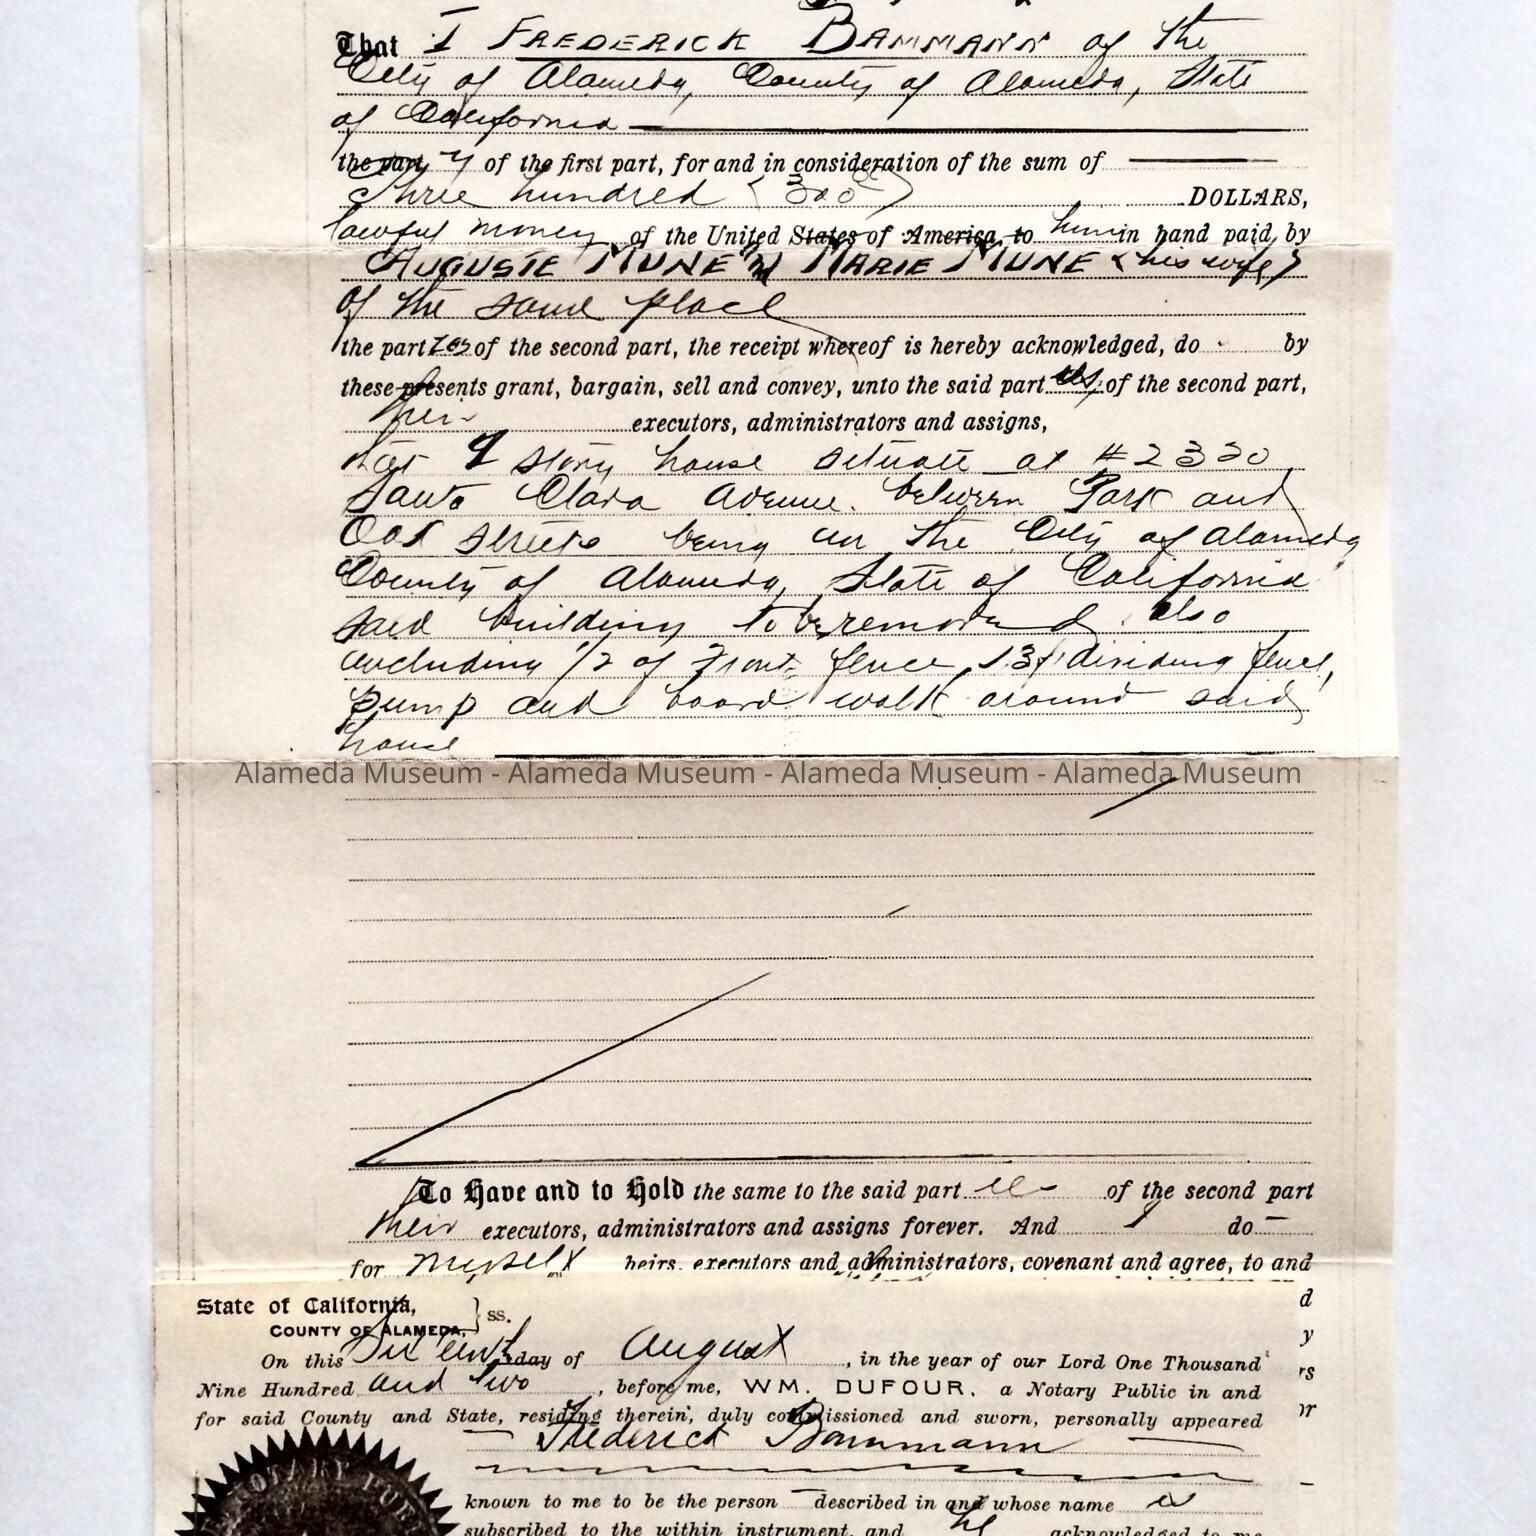 That I FREDERICK BAMMANN of the
City of Alameda, County of Alameda, State
of California
the party of the first part, for and in consideration of the sum of
Three hundred (300) DOLLARS,
lawful money of the United States of America, to him in hand paid, by
AUGUSTE MUNE & MARIE MUNE (his wife)
of the same place
the parties of the second part, the receipt whereof is hereby acknowledged, do by
these presents grant, bargain, sell and convey, unto the said parties of the second part,
their executors, administrators and assigns,
story house situate at #2320
Santa Clara Avenue. between Park and
Oak streets being in the City of Alameda
County of Alameda, State of California
said building to be removed, also
including 1/2 of Front fence, dividing fence,
pump and board walk around said
house
Alameda Museum - Alameda Museum - Alameda Museum - Alameda Museum
To Have and to Hold the same to the said part of the second part
their executors, administrators and assigns forever. And I do
for myself heirs, executors and administrators, covenant and agree, to and
State of California,
COUNTY OF ALAMEDA, } ss.
On this day of August, in the year of our Lord One Thousand
Nine Hundred and two, before me, WM. DUFOUR, a Notary Public in and
for said County and State, residing therein, duly commissioned and sworn, personally appeared
Frederick Bammann
known to me to be the person described in and whose name is
subscribed to the within instrument, and he acknowledged to me
NOTARY PUB